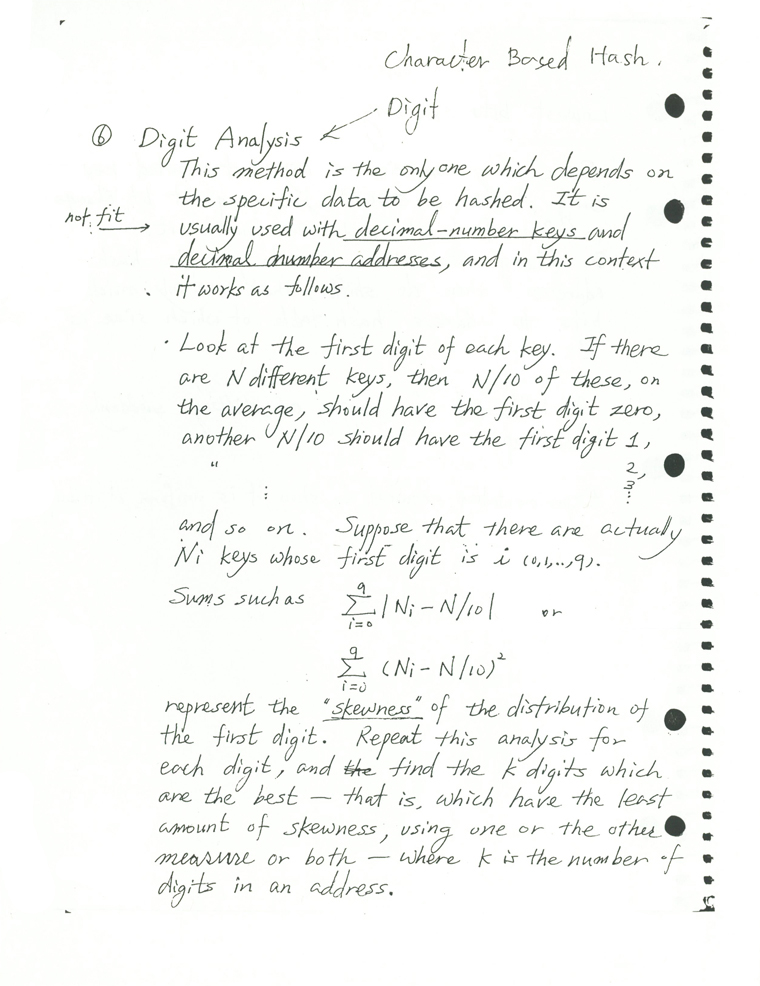 Character Based Hash.
Digit
⑥ Digit Analysis
This method is the only one which depends on
the specific data to be hashed. It is
not fit
usually used with decimal-number keys and
decimal number addresses, and in this context
it works as follows.
· Look at the first digit of each key. If there
are N different keys, then N/10 of these, on
the average, should have the first digit zero,
another N/10 should have the first digit 1,
" 2,
⋮ 3
⋮
and so on. Suppose that there are actually
Ni keys whose first digit is i (0,1,..,9).
Sums such as ∑_{i=0}^{9} |Ni - N/10| or
∑_{i=0}^{9} (Ni - N/10)²
represent the "skewness" of the distribution of
the first digit. Repeat this analysis for
each digit, and the find the k digits which
are the best — that is, which have the least
amount of skewness, using one or the other
measure or both — where k is the number of
digits in an address.